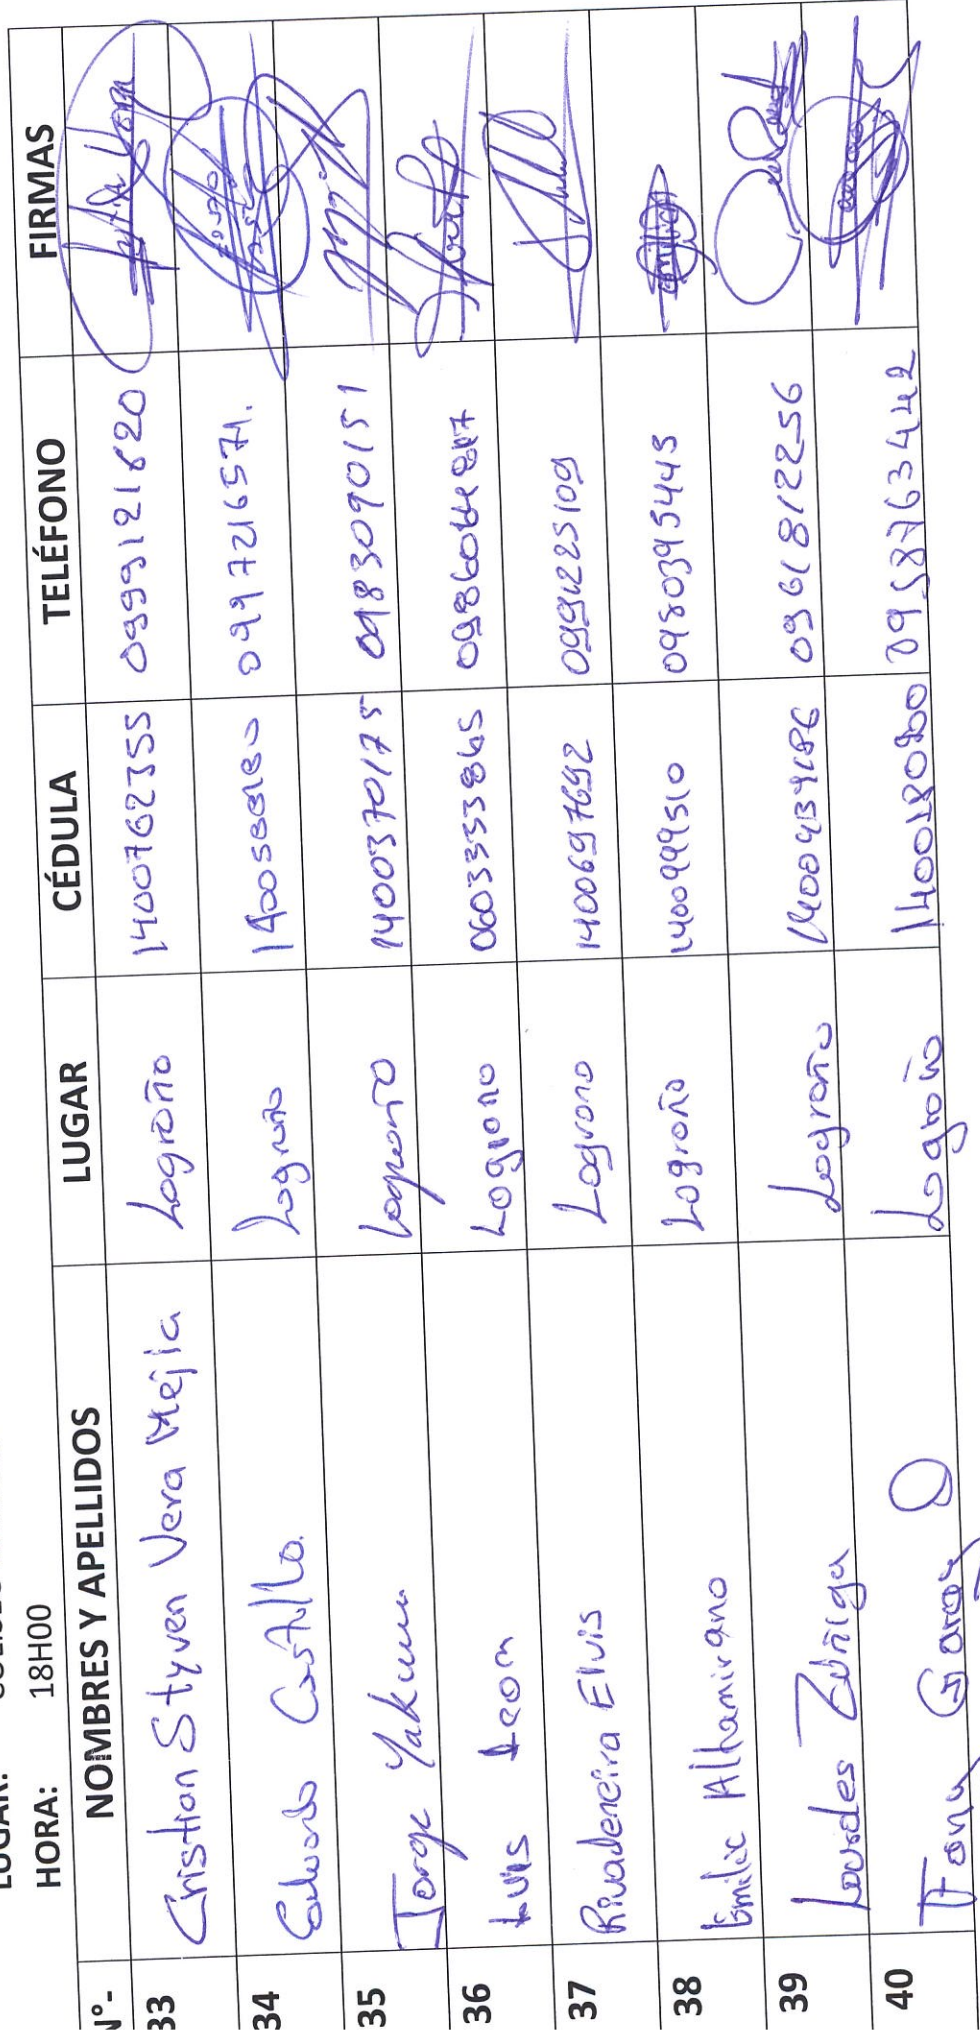 HORA: 18H00
N°- NOMBRES Y APELLIDOS LUGAR CÉDULA TELÉFONO FIRMAS
33 Cristian Styven Vera Mejia Logroño 1400762355 0999121620
34 Eduardo Castillo. Logroño 0997216571.
35 Jorge Yakum Logroño 1400370175 0983090151
36 Luis Leon Logrono 0603333865
37 Rivadeneira Elvis Logrono 1400697692 0994225109
38 Emilie Altamirano Logroño 1400999510 0980395445
39 Lourdes Zúñiga Logroño 0961812256
40 Logroño 0958763442